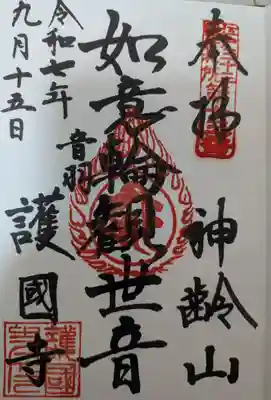 奉拝
神齢山
如意輪観世音
音羽
護國寺
令和七年
九月十五日
護國寺印